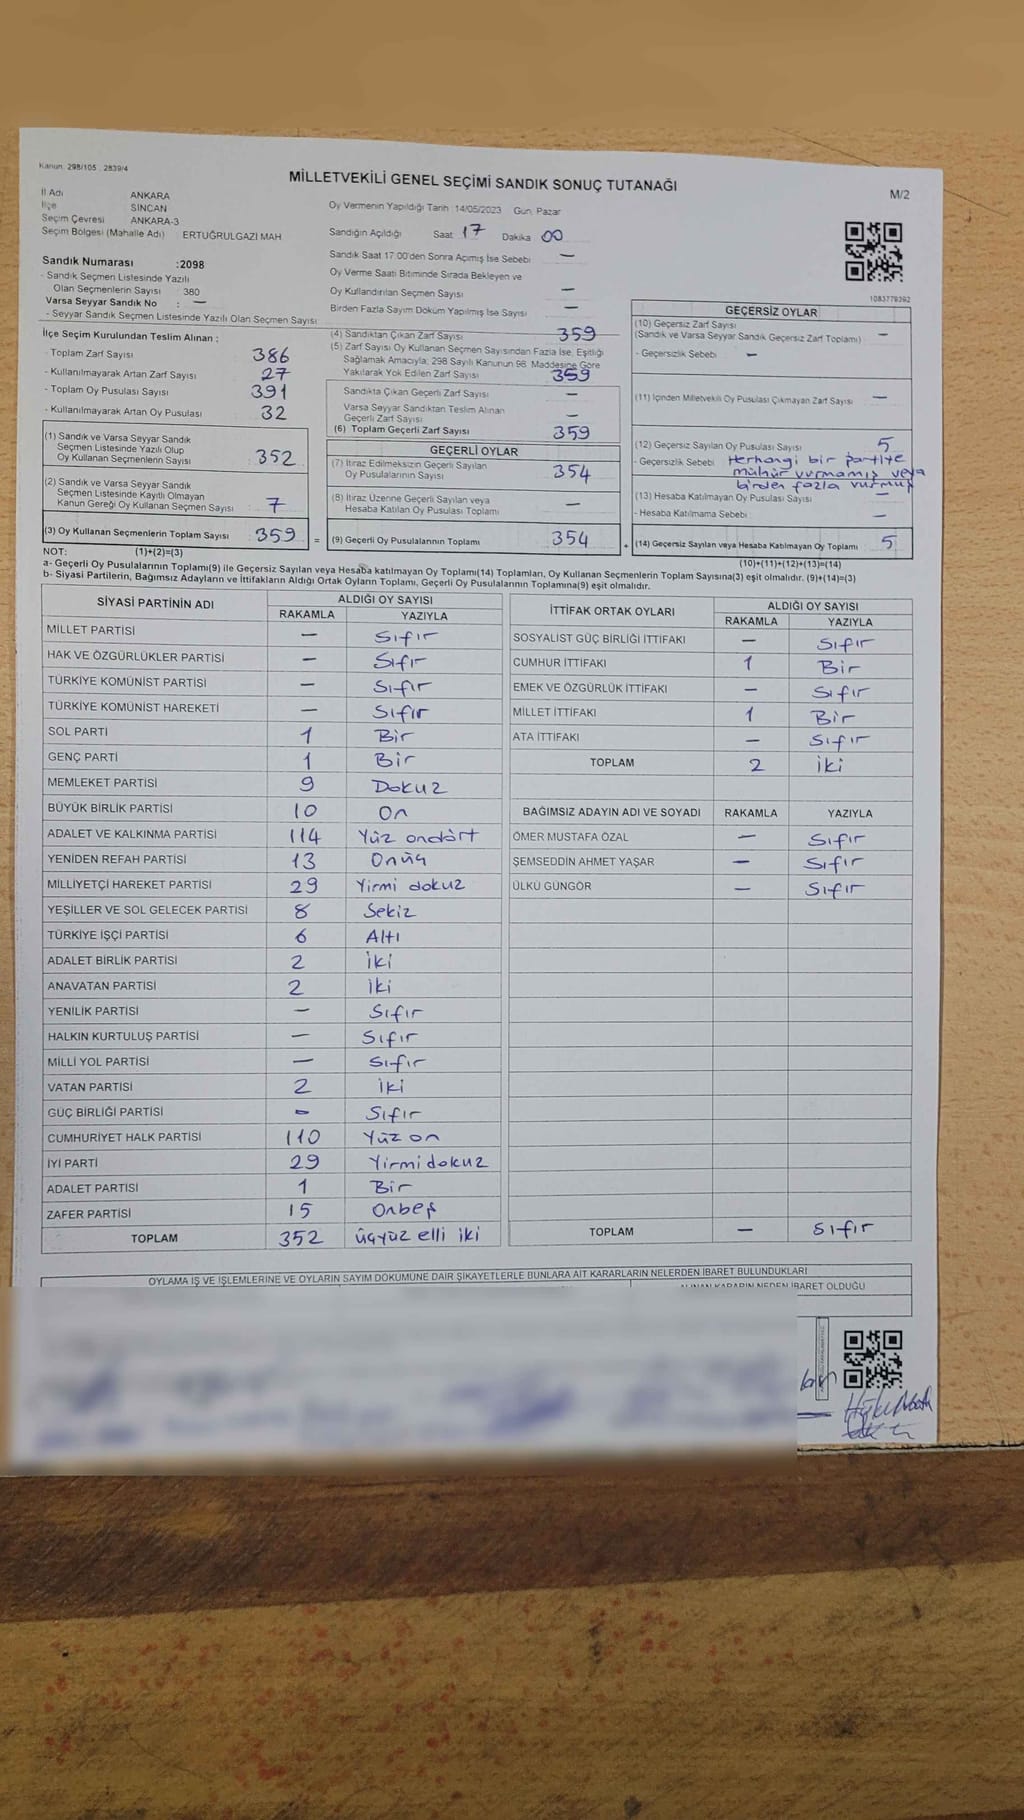 Kanun: 298/105 , 2839/4
MİLLETVEKİLİ GENEL SEÇİMİ SANDIK SONUÇ TUTANAĞI
M/2
İl Adı ANKARA
İlçe SİNCAN
Seçim Çevresi ANKARA-3
Seçim Bölgesi (Mahalle Adı) ERTUĞRULGAZİ MAH.
Oy Vermenin Yapıldığı Tarih :14/05/2023 Gün: Pazar
Sandığın Açıldığı Saat 17 Dakika 00
Sandık Saat 17:00'den Sonra Açılmış İse Sebebi —
Oy Verme Saati Bitiminde Sırada Bekleyen ve
Oy Kullandırılan Seçmen Sayısı —
Birden Fazla Sayım Döküm Yapılmış İse Sayısı —
Sandık Numarası :2098
- Sandık Seçmen Listesinde Yazılı
Olan Seçmenlerin Sayısı : 380
Varsa Seyyar Sandık No : —
- Seyyar Sandık Seçmen Listesinde Yazılı Olan Seçmen Sayısı:
İlçe Seçim Kurulundan Teslim Alınan :
- Toplam Zarf Sayısı 386
- Kullanılmayarak Artan Zarf Sayısı 27
- Toplam Oy Pusulası Sayısı 391
- Kullanılmayarak Artan Oy Pusulası 32
(1) Sandık ve Varsa Seyyar Sandık
Seçmen Listesinde Yazılı Olup
Oy Kullanan Seçmenlerin Sayısı 352
(2) Sandık ve Varsa Seyyar Sandık
Seçmen Listesinde Kayıtlı Olmayan
Kanun Gereği Oy Kullanan Seçmen Sayısı 7
(3) Oy Kullanan Seçmenlerin Toplam Sayısı 359 =
(4) Sandıktan Çıkan Zarf Sayısı 359
(5) Zarf Sayısı Oy Kullanan Seçmen Sayısından Fazla İse, Eşitliği
Sağlamak Amacıyla; 298 Sayılı Kanunun 98. Maddesine Göre
Yakılarak Yok Edilen Zarf Sayısı 359
Sandıkta Çıkan Geçerli Zarf Sayısı —
Varsa Seyyar Sandıktan Teslim Alınan
Geçerli Zarf Sayısı —
(6) Toplam Geçerli Zarf Sayısı 359
GEÇERLİ OYLAR
(7) İtiraz Edilmeksizin Geçerli Sayılan
Oy Pusulalarının Sayısı 354
(8) İtiraz Üzerine Geçerli Sayılan veya
Hesaba Katılan Oy Pusulası Toplamı —
(9) Geçerli Oy Pusulalarının Toplamı 354 +
1083779392
GEÇERSİZ OYLAR
(10) Geçersiz Zarf Sayısı
(Sandık ve Varsa Seyyar Sandık Geçersiz Zarf Toplamı) —
- Geçersizlik Sebebi —
(11) İçinden Milletvekili Oy Pusulası Çıkmayan Zarf Sayısı —
(12) Geçersiz Sayılan Oy Pusulası Sayısı 5
- Geçersizlik Sebebi Herhangi bir partiye
mühür vurmamış veya
birden fazla vurmuş
(13) Hesaba Katılmayan Oy Pusulası Sayısı —
- Hesaba Katılmama Sebebi —
(14) Geçersiz Sayılan veya Hesaba Katılmayan Oy Toplamı 5
NOT: (1)+(2)=(3) (10)+(11)+(12)+(13)=(14)
a- Geçerli Oy Pusulalarının Toplamı(9) ile Geçersiz Sayılan veya Hesaba katılmayan Oy Toplamı(14) Toplamları, Oy Kullanan Seçmenlerin Toplam Sayısına(3) eşit olmalıdır. (9)+(14)=(3)
b- Siyasi Partilerin, Bağımsız Adayların ve İttifakların Aldığı Ortak Oyların Toplamı, Geçerli Oy Pusulalarının Toplamına(9) eşit olmalıdır.
SİYASİ PARTİNİN ADI ALDIĞI OY SAYISI
RAKAMLA YAZIYLA
MİLLET PARTİSİ — Sıfır
HAK VE ÖZGÜRLÜKLER PARTİSİ — Sıfır
TÜRKİYE KOMÜNİST PARTİSİ — Sıfır
TÜRKİYE KOMÜNİST HAREKETİ — Sıfır
SOL PARTİ 1 Bir
GENÇ PARTİ 1 Bir
MEMLEKET PARTİSİ 9 Dokuz
BÜYÜK BİRLİK PARTİSİ 10 On
ADALET VE KALKINMA PARTİSİ 114 Yüz ondört
YENİDEN REFAH PARTİSİ 13 Onüç
MİLLİYETÇİ HAREKET PARTİSİ 29 Yirmi dokuz
YEŞİLLER VE SOL GELECEK PARTİSİ 8 Sekiz
TÜRKİYE İŞÇİ PARTİSİ 6 Altı
ADALET BİRLİK PARTİSİ 2 İki
ANAVATAN PARTİSİ 2 İki
YENİLİK PARTİSİ — Sıfır
HALKIN KURTULUŞ PARTİSİ — Sıfır
MİLLİ YOL PARTİSİ — Sıfır
VATAN PARTİSİ 2 İki
GÜÇ BİRLİĞİ PARTİSİ — Sıfır
CUMHURİYET HALK PARTİSİ 110 Yüz on
İYİ PARTİ 29 Yirmidokuz
ADALET PARTİSİ 1 Bir
ZAFER PARTİSİ 15 Onbeş
TOPLAM 352 üçyüz elli iki
İTTİFAK ORTAK OYLARI ALDIĞI OY SAYISI
RAKAMLA YAZIYLA
SOSYALİST GÜÇ BİRLİĞİ İTTİFAKI — Sıfır
CUMHUR İTTİFAKI 1 Bir
EMEK VE ÖZGÜRLÜK İTTİFAKI — Sıfır
MİLLET İTTİFAKI 1 Bir
ATA İTTİFAKI — Sıfır
TOPLAM 2 İki
BAĞIMSIZ ADAYIN ADI VE SOYADI RAKAMLA YAZIYLA
ÖMER MUSTAFA ÖZAL — Sıfır
ŞEMSEDDİN AHMET YAŞAR — Sıfır
ÜLKÜ GÜNGÖR — Sıfır
TOPLAM — Sıfır
OYLAMA İŞ VE İŞLEMLERİNE VE OYLARIN SAYIM DÖKÜMÜNE DAİR ŞİKAYETLERLE BUNLARA AİT KARARLARIN NELERDEN İBARET BULUNDUKLARI
ALINAN KARARIN NEDEN İBARET OLDUĞU